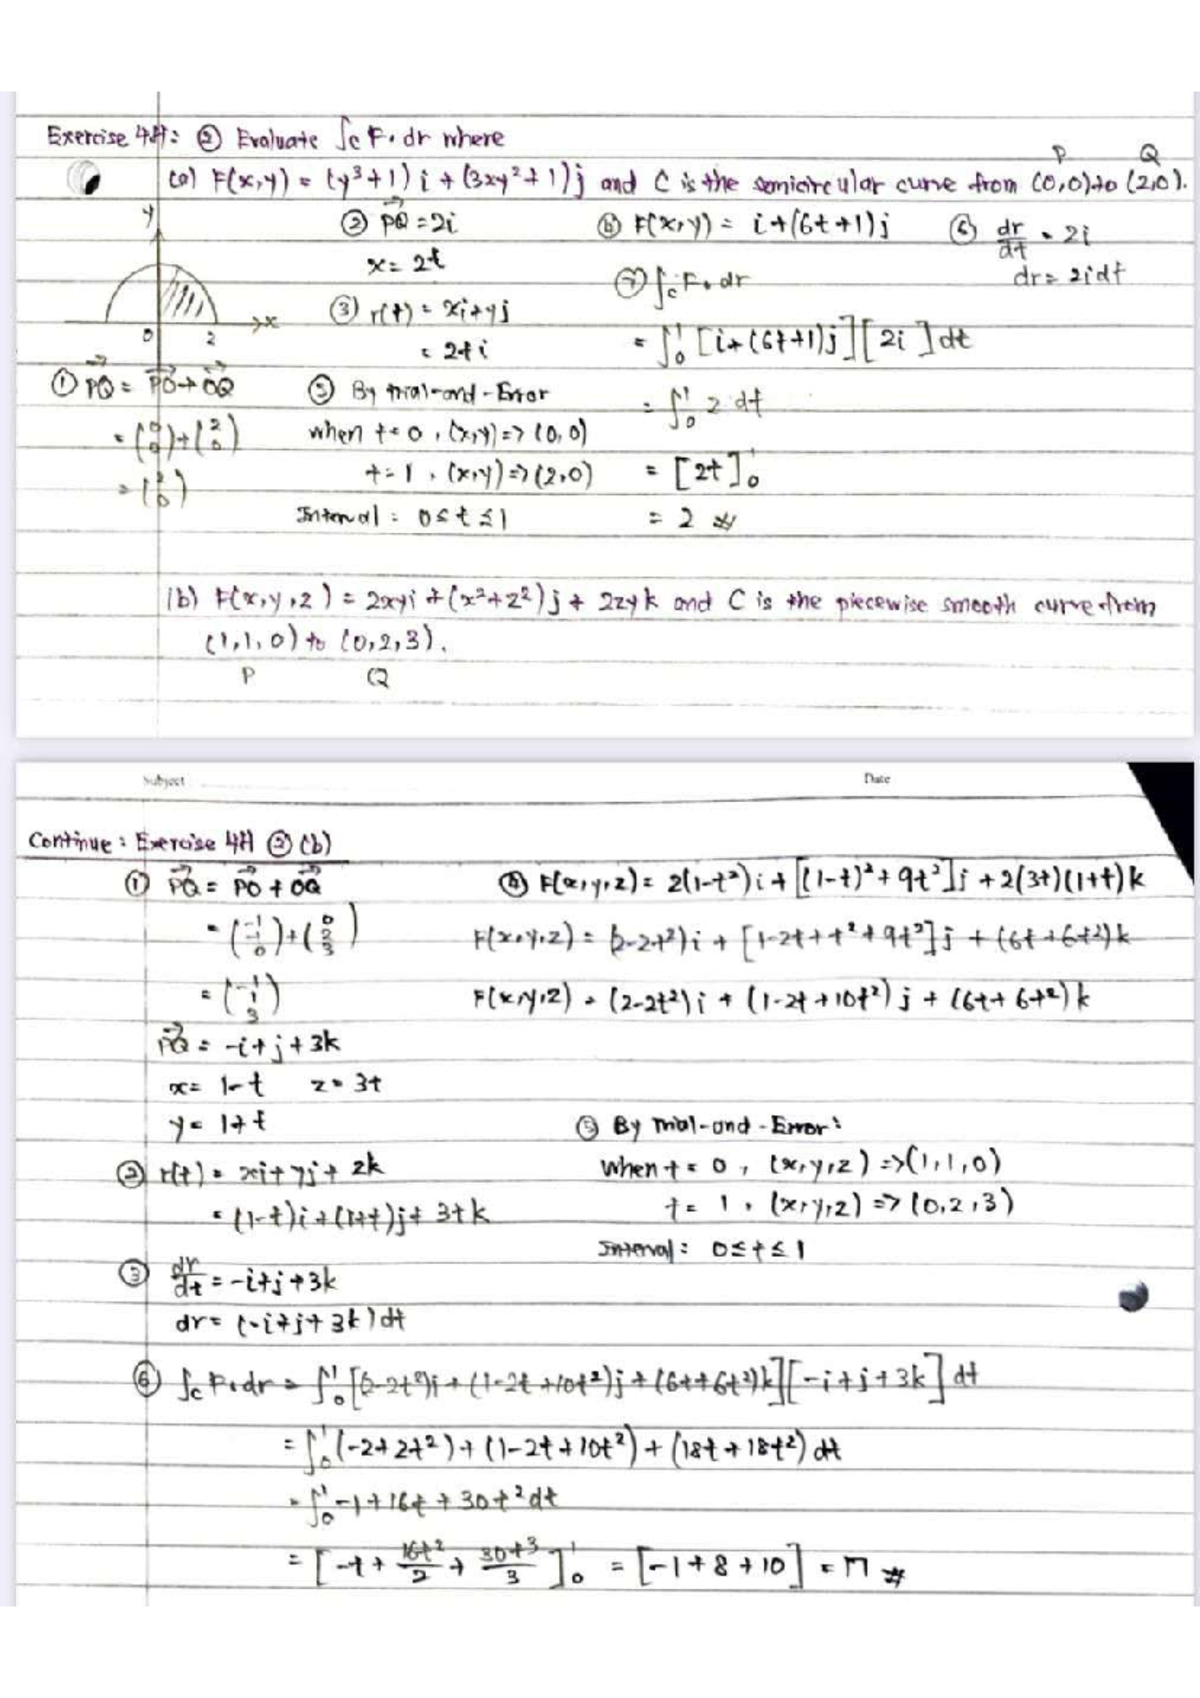 Exercise 4A: ② Evaluate ∫c F. dr where
(a) F(x,y) = (y³+1) i + (3xy²+1)j and C is the semicircular curve from (0,0) to (2,0).
P Q
y
x
0 2
① PQ = PO + OQ
= (0 0) + (2 0)
= (2 0)
② PQ = 2i
x = 2t
③ r(t) = xi+yj
= 2ti
⑤ By trial-and-Error
when t=0, (x,y) => (0,0)
t=1, (x,y) => (2,0)
Interval: 0≤t≤1
⑥ F(x,y) = i+(6t+1)j
⑦ ∫c F. dr
= ∫₀¹ [i+(6t+1)j][2i] dt
= ∫₀¹ 2 dt
= [2t]₀¹
= 2 #
⑥ dr/dt = 2i
dr = 2idt
(b) F(x,y,z) = 2xyi + (x²+z²)j + 2zyk and C is the piecewise smooth curve from
(1,1,0) to (0,2,3).
P Q
Subject Date
Continue: Exercise 4A ② (b)
① PQ = PO + OQ
= (-1 -1 0) + (0 2 3)
= (-1 1 3)
PQ = -i+j+3k
x = 1-t z = 3t
y = 1+t
② r(t) = xi+yj+zk
= (1-t)i+(1+t)j+3tk
③ dr/dt = -i+j+3k
dr = (-i+j+3k)dt
④ F(x,y,z) = 2(1-t²)i+[(1-t)²+9t²]j+2(3t)(1+t)k
F(x,y,z) = (2-2t²)i + [1-2t+t²+9t²]j + (6t+6t²)k
F(x,y,z) = (2-2t²)i + (1-2t+10t²)j + (6t+6t²)k
⑤ By Trial-and-Error:
when t=0, (x,y,z) => (1,1,0)
t=1, (x,y,z) => (0,2,3)
Interval: 0≤t≤1
⑥ ∫c F.dr = ∫₀¹ [(2-2t²)i+(1-2t+10t²)j+(6t+6t²)k][-i+j+3k] dt
= ∫₀¹ (-2+2t²)+(1-2t+10t²)+(18t+18t²) dt
= ∫₀¹ -1+16t+30t² dt
= [-t+16t²/2+30t³/3]₀¹ = [-1+8+10] = 17 #